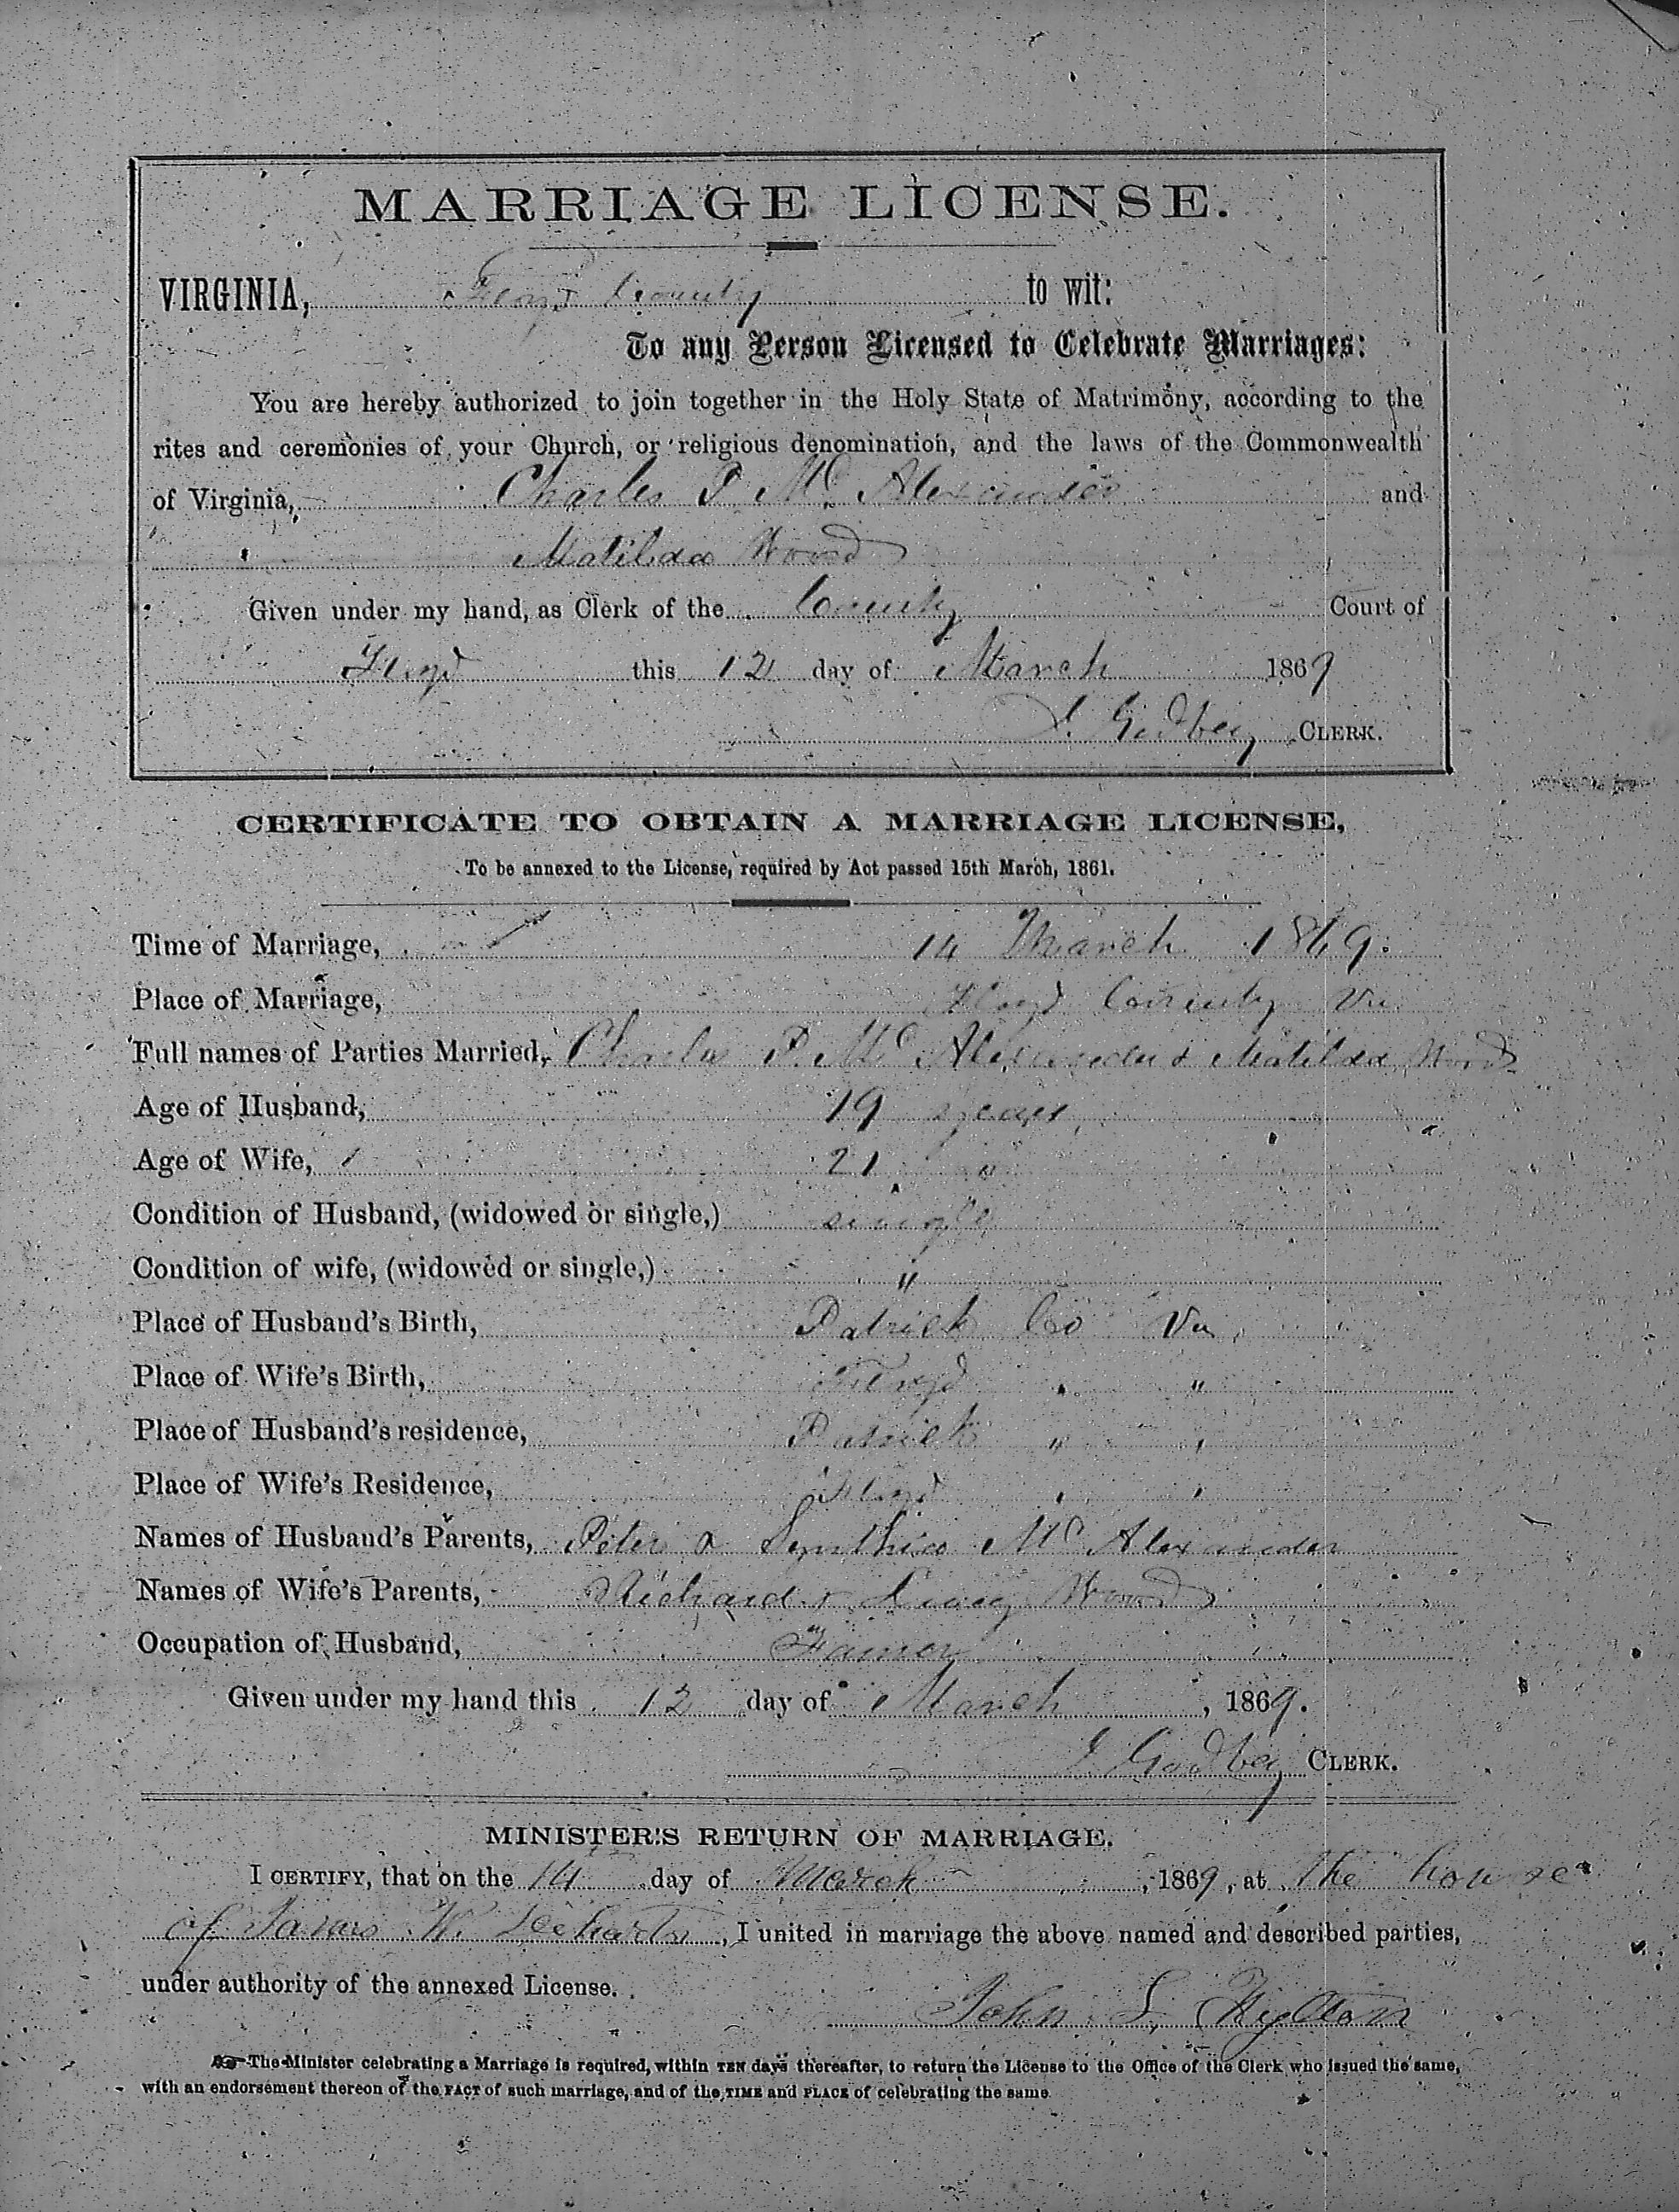 MARRIAGE LICENSE.
VIRGINIA, Floyd County to wit:
To any Person Licensed to Celebrate Marriages:
You are hereby authorized to join together in the Holy State of Matrimony, according to the
rites and ceremonies of your Church, or religious denomination, and the laws of the Commonwealth
of Virginia, Charles P. Mc Alexander and
Matilda Wood
Given under my hand, as Clerk of the County Court of
Floyd this 12 day of March 1869
Godbey CLERK.
CERTIFICATE TO OBTAIN A MARRIAGE LICENSE,
To be annexed to the License, required by Act passed 15th March, 1861.
Time of Marriage, 14 March 1869.
Place of Marriage, Floyd County Va
Full names of Parties Married, Charles P. Mc Alexander & Matilda Wood
Age of Husband, 19 years
Age of Wife, 21 "
Condition of Husband, (widowed or single,) single
Condition of wife, (widowed or single,) "
Place of Husband's Birth, Patrick Co Va
Place of Wife's Birth, Floyd " "
Place of Husband's residence, Patrick " "
Place of Wife's Residence, Floyd " "
Names of Husband's Parents, Peter & Synthia Mc Alexander
Names of Wife's Parents, Richard & Wood
Occupation of Husband, Farmer
Given under my hand this 12 day of March, 1869.
Godbey CLERK.
MINISTER'S RETURN OF MARRIAGE.
I CERTIFY, that on the 14 day of March, 1869, at the house
of W. , I united in marriage the above named and described parties,
under authority of the annexed License.
John Hylton
The Minister celebrating a Marriage is required, within TEN days thereafter, to return the License to the Office of the Clerk who issued the same,
with an endorsement thereon of the FACT of such marriage, and of the TIME and PLACE of celebrating the same.